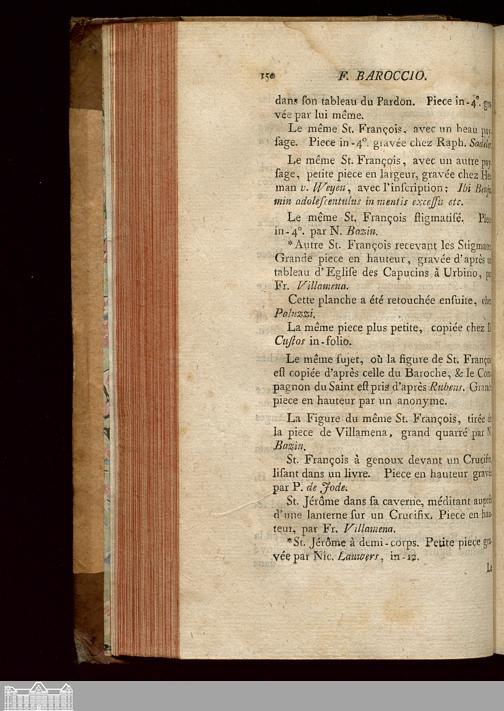 150 F. BAROCCIO.
dans ſon tableau du Pardon. Piece in-4°. gra
vée par lui même.
Le même St. François, avec un beau pay
ſage. Piece in-4°. gravée chez Raph. Sadeler
Le même St. François, avec un autre pay
ſage, petite piece en largeur, gravée chez Her
man v. Weyen, avec l'inſcription: Ibi Benja
min adoleſcentulus in mentis exceſſu etc.
Le même St. François ſtigmatiſé. Piec
in-4°. par N. Bazin.
*Autre St. François recevant les Stigmates
Grande piece en hauteur, gravée d'après un
tableau d'Egliſe des Capucins à Urbino, par
Fr. Villamena.
Cette planche a été retouchée enſuite, chez
Paluzzi.
La même piece plus petite, copiée chez D
Cuſtos in-folio.
Le même ſujet, où la figure de St. François
eſt copiée d'après celle du Baroche, & le Com
pagnon du Saint eſt pris d'après Rubens. Grande
piece en hauteur par un anonyme.
La Figure du même St. François, tirée de
la piece de Villamena, grand quarré par N
Bazin.
St. François à genoux devant un Crucifix
liſant dans un livre. Piece en hauteur gravée
par P. de Jode.
St. Jérôme dans ſa caverne, méditant auprès
d'une lanterne ſur un Crucifix. Piece en hau-
teur, par Fr. Villamena.
*St. Jérôme à demi-corps. Petite piece gra-
vée par Nic. Lauwers, in-12.
Le